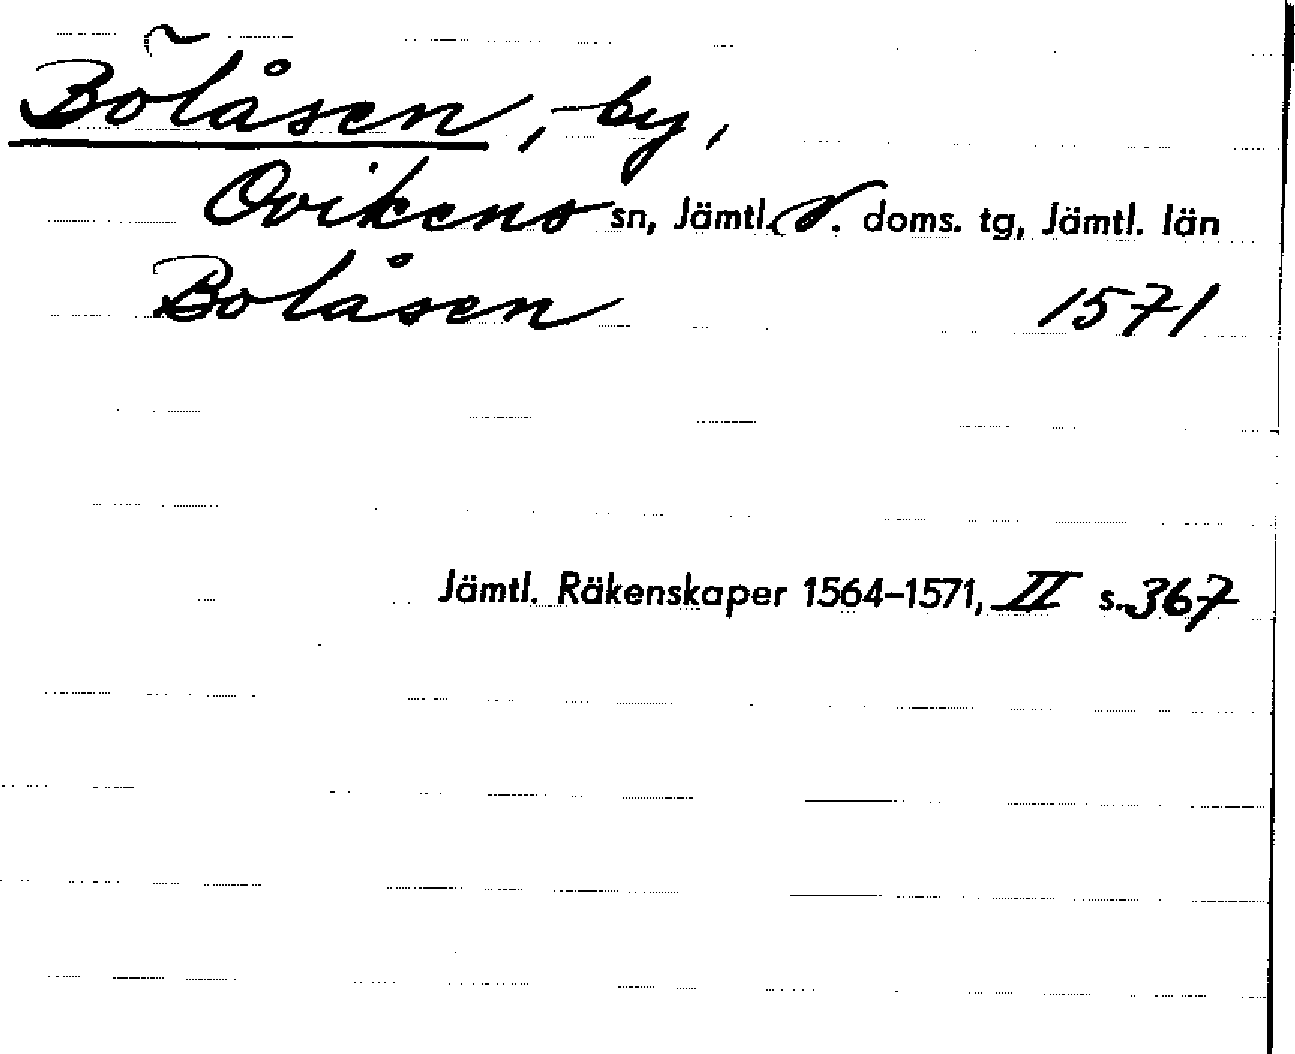 Bölåsen, by,
Ovikens sn, Jämtl. v. doms. tg, Jämtl. län
Bolåsen 1571
Jämtl. Räkenskaper 1564–1571, II s. 367